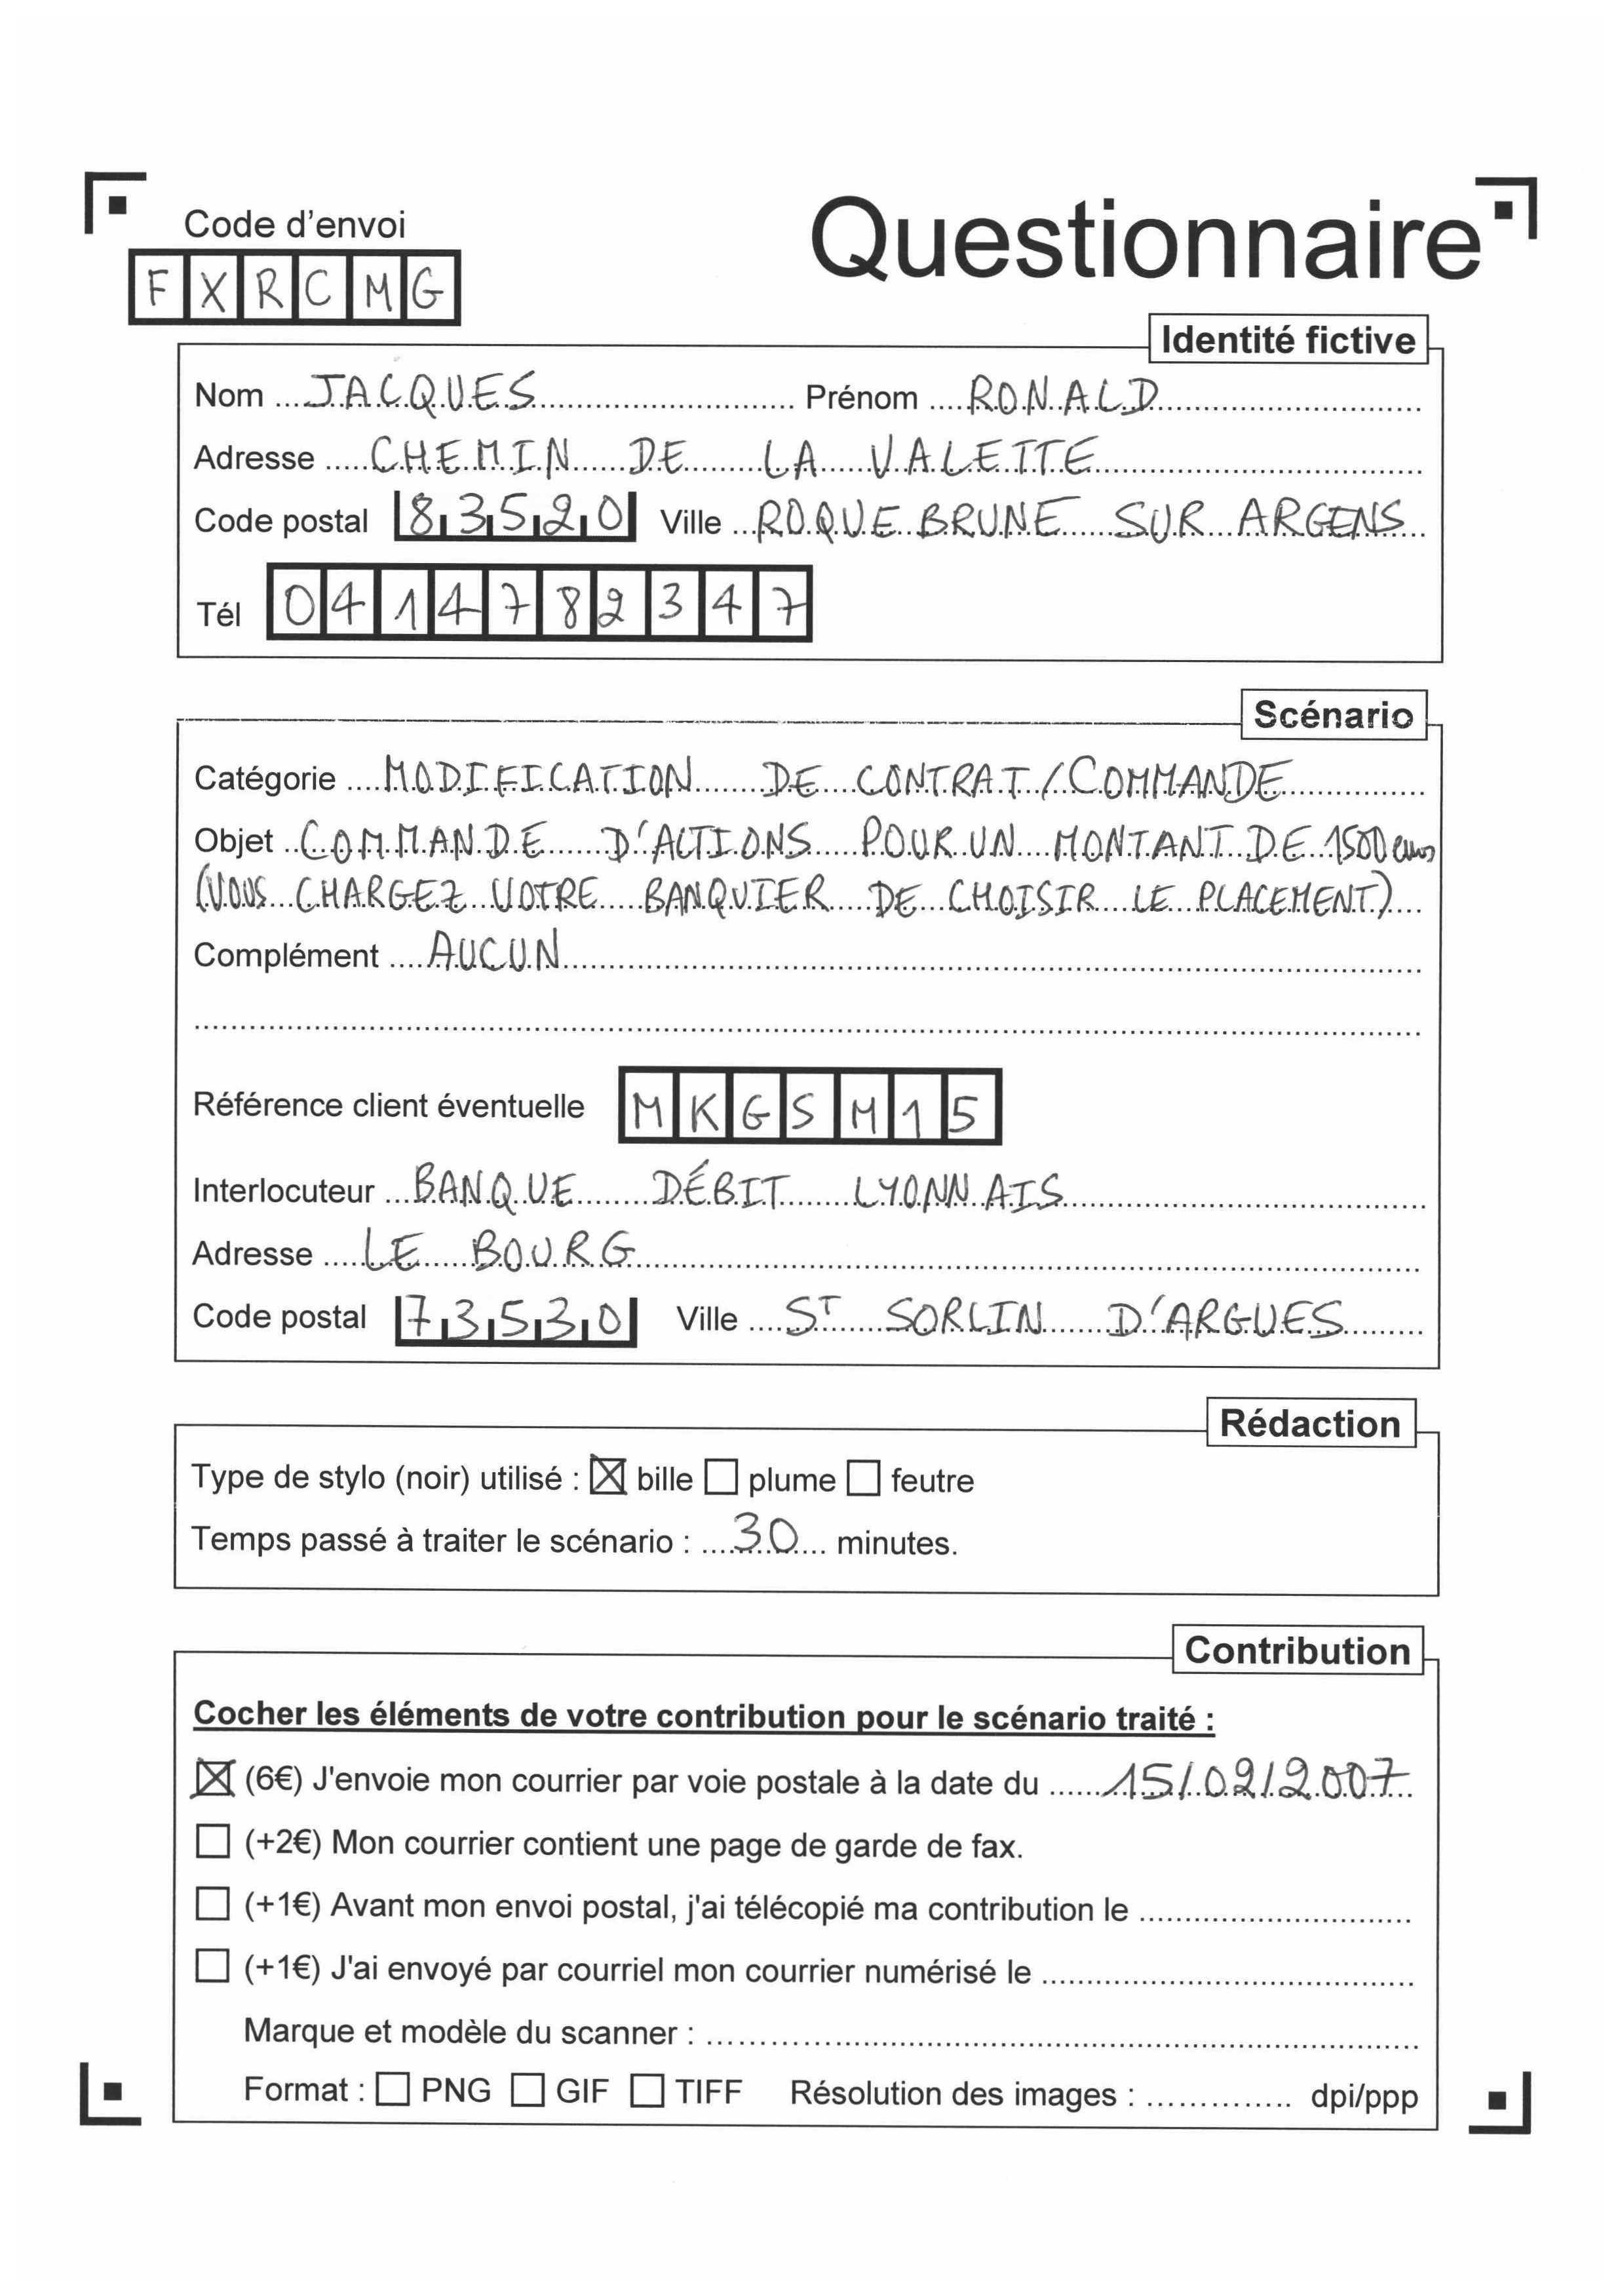 Code d'envoi
Questionnaire
FXRCMG
Identité fictive
Nom JACQUES Prénom RONALD
Adresse CHEMIN DE LA VALETTE
Code postal 83520 Ville ROQUEBRUNE SUR ARGENS
Tél 0414782347
Scénario
Catégorie MODIFICATION DE CONTRAT/COMMANDE
Objet COMMANDE D'ACTIONS POUR UN MONTANT DE 1500 euros
(VOUS CHARGEZ VOTRE BANQUIER DE CHOISIR LE PLACEMENT)
Complément AUCUN
Référence client éventuelle MKGSM15
Interlocuteur BANQUE DÉBIT LYONNAIS
Adresse LE BOURG
Code postal 73530 Ville ST SORLIN D'ARGUES
Rédaction
Type de stylo (noir) utilisé : ☒ bille ☐ plume ☐ feutre
Temps passé à traiter le scénario : 30 minutes.
Contribution
Cocher les éléments de votre contribution pour le scénario traité :
☒ (6€) J'envoie mon courrier par voie postale à la date du 15/02/2007
☐ (+2€) Mon courrier contient une page de garde de fax.
☐ (+1€) Avant mon envoi postal, j'ai télécopié ma contribution le
☐ (+1€) J'ai envoyé par courriel mon courrier numérisé le
Marque et modèle du scanner :
Format : ☐ PNG ☐ GIF ☐ TIFF Résolution des images : dpi/ppp